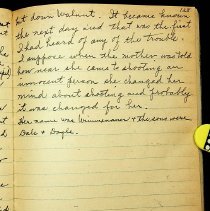 let down Walnut. It became known
the next day and that was the first
I had heard of any of the trouble.
I suppose when the mother was told
how near she came to shooting an
innocent person she changed her
mind about shooting and probably
it was changed for her.
Her name was & the sons were
Dale & Doyle.